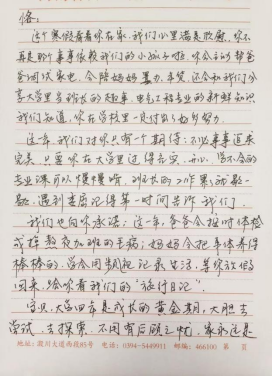 恪:
这个寒假看着你在家,我们心里满是欣慰,你不
再是那个事事依赖我们的小孩子啦,你会主动帮爸
爸调试家电,会陪妈妈买力年货,还会和我们分
享大学里当班长的趣事,电气工程专业的新鲜知识
我们知道,你在学校里一定付出了好多努力。
这一年,我们对你只有个期待:不必事事追求
完美,只要你在大学里过得充实、开心,学不会的
专业课可以慢慢啃,班长的工作累了就歇一
歇,遇到委屈记得第一时间告诉我们。
我们也向你承诺:这一年,爸爸会按时体检
戒掉熬夜加班的毛病;妈妈会把身体养得
棒棒的,学会用视频记录生活,等你放假
回来,给你看我们的"旅行日记"。
宝贝,大学四年是成长的黄金期,大胆去
尝试,去探索,不用有后顾之忧,家永远是
地址:周口大道西段85号 电话:0394-5449911 邮编:466100 第 页